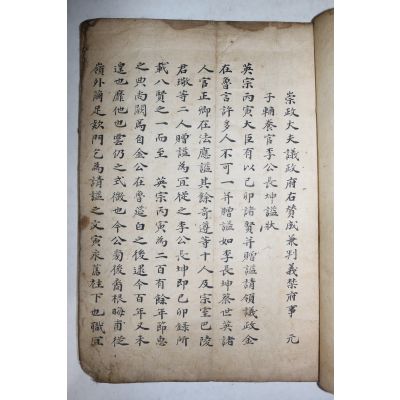 崇政大夫議政府右贊成兼判義禁府事 元
子輔養官李公長坤諡狀
英宗丙寅大臣有以己卯諸賢并贈諡請領議政金
在魯言許多人不可一并贈諡如李長坤蔡世英諸
人官正卿在法應諡其餘奇遵等十人及宗室巴陵
君璥等二人贈諡為宜從之李公長坤即己卯錄所
載八賢之一而至 英宗丙寅為二百有餘年節惠
之典尚闕焉自金公在魯筵白之後逮今百年又未
遑也靡他也雲仍之式微也今公前後裔根晦甫從
嶺外繭足欵門乞為請諡之文寅永舊柱下也職宜